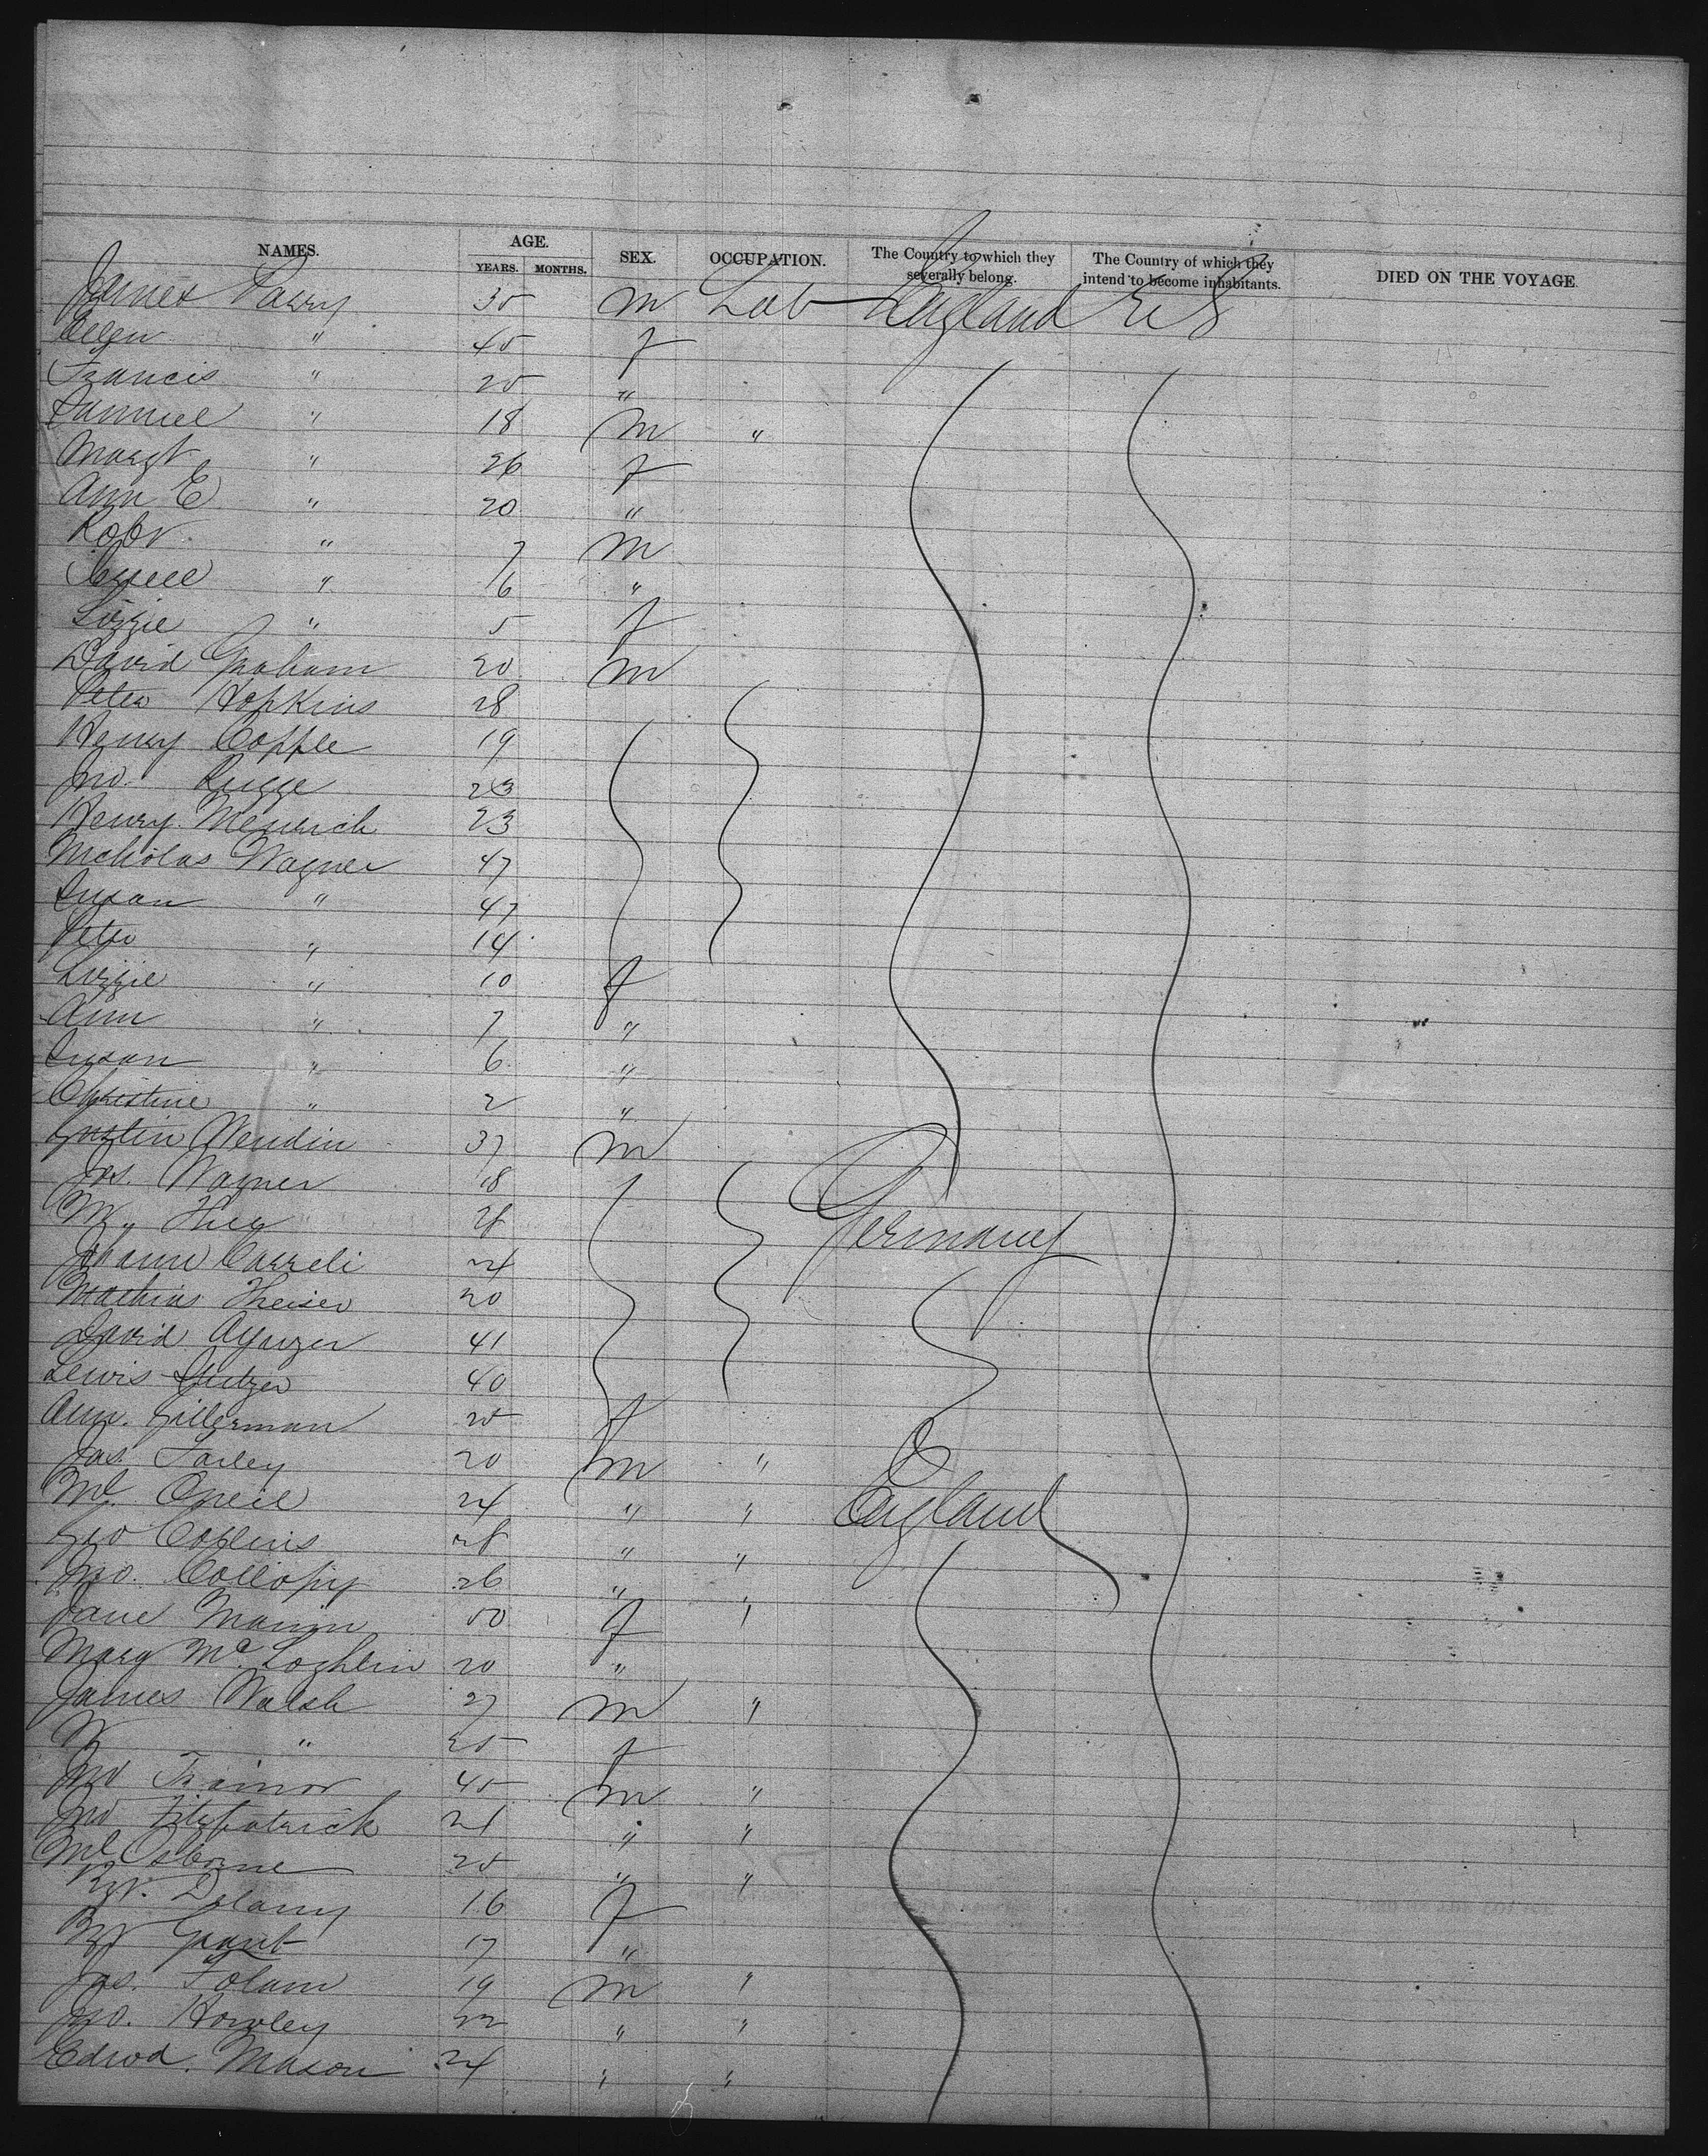 NAMES. AGE. SEX. OCCUPATION. The Country to which they severally belong. The Country of which they intend to become inhabitants. DIED ON THE VOYAGE.
YEARS. MONTHS.
James Parry 35 M Lab England U S
Ellen " 45 f
Francis " 25 "
Samuel " 18 M "
Margt " 26 f
Ann E " 20 "
Robt " 7 M
" 6 "
Lizzie " 5 f
David Graham 20 M
Peter Hopkins 28
Henry Copple 19
Jno. Rugge 23
Henry Menrich 23
Nicholas Wagner 47
Susan " 47
Peter " 14
Lizzie " 10 f
Ann " 7 "
Susan " 6 "
Christine " 2 "
Wendin 37 M
Jos. Wagner 18
M. 28 Germany
Johann Carreli 24
Mathias Theiser 20
David 41
Lewis 40
Ann. Gillerman 25 f
Jas. Farley 20 M "
Ml. Oneil 24 " " England
Geo Coplins 28 " "
Jno. Collopy 26 " "
Jane Mannin 50 f "
Mary Mc Loghlin 20 "
James Walsh 27 M "
W " 25 f
Jno Trainor 45 M "
Jno Fitzpatrick 24 " "
Ml Osborne 25 " "
Bgt. Delany 16 f
Bgt Grant 17 "
Jas. Folam 19 M "
Jno. Howley 22 " "
Edwd. Mason 24 " "